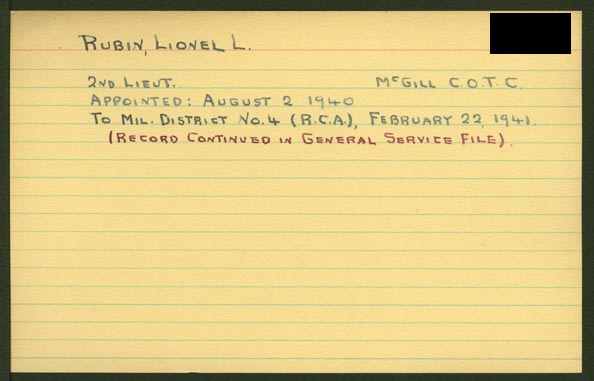 RUBIN, LIONEL L.
2ND LIEUT. McGILL C.O.T.C.
APPOINTED: AUGUST 2 1940
TO MIL. DISTRICT NO. 4 (R.C.A.), FEBRUARY 22, 1941.
(RECORD CONTINUED IN GENERAL SERVICE FILE).